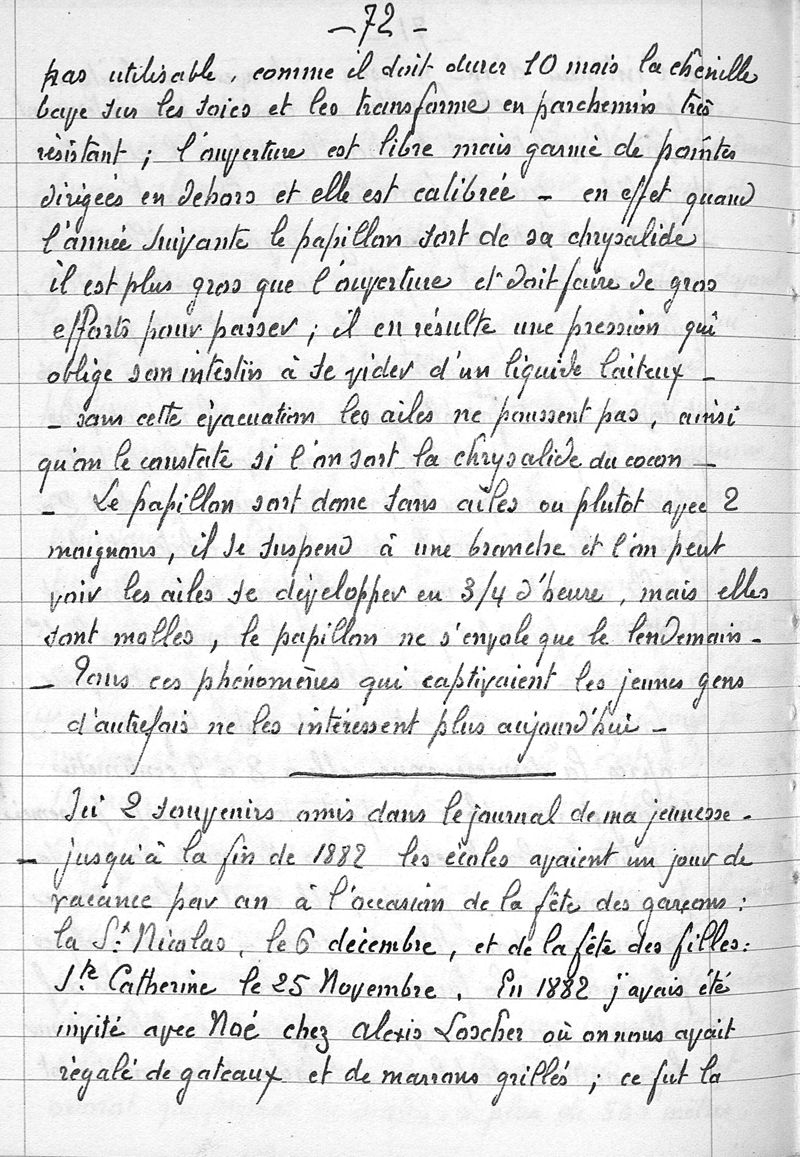 - 72 -
pas utilisable, comme il doit durer 10 mois la chenille
bave sur les soies et les transforme en parchemin très
résistant ; l'ouverture est libre mais garnie de pointes
dirigées en dehors et elle est calibrée - en effet quand
l'année suivante le papillon sort de sa chrysalide
il est plus gros que l'ouverture et doit faire de gros
efforts pour passer ; il en résulte une pression qui
oblige son intestin à se vider d'un liquide laiteux -
- sans cette évacuation les ailes ne poussent pas, ainsi
qu'on le constate si l'on sort la chrysalide du cocon -
- Le papillon sort donc sans aîles ou plutot avec 2
moignons, il se suspend à une branche et l'on peut
voir les ailes se développer en 3/4 d'heure, mais elles
sont molles, le papillon ne s'envole que le lendemain -
- Tous ces phénomènes qui captivaient les jeunes gens
d'autrefois ne les intéressent plus aujourd'hui -
Ici 2 souvenirs omis dans le journal de ma jeunesse -
- jusqu'à la fin de 1882 les écoles avaient un jour de
vacance par an à l'occasion de la fête des garçons :
la St Nicolas, le 6 décembre, et de la fête des filles :
Ste Catherine le 25 Novembre. En 1882 j'avais été
invité avec Noé chez Alexis Loscher où on nous avait
régalé de gateaux et de marrons grillés ; ce fut la